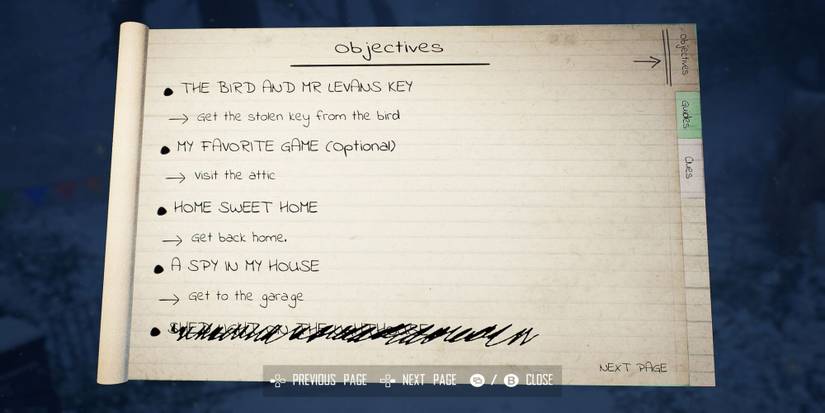 Objectives
THE BIRD AND MR LEVANS KEY
Get the stolen key from the bird
MY FAVORITE GAME (optional)
Visit the attic
HOME SWEET HOME
Get back home.
A SPY IN MY HOUSE
Get to the garage
NEXT PAGE
Objectives
Guides
Clues
PREVIOUS PAGE NEXT PAGE / B CLOSE